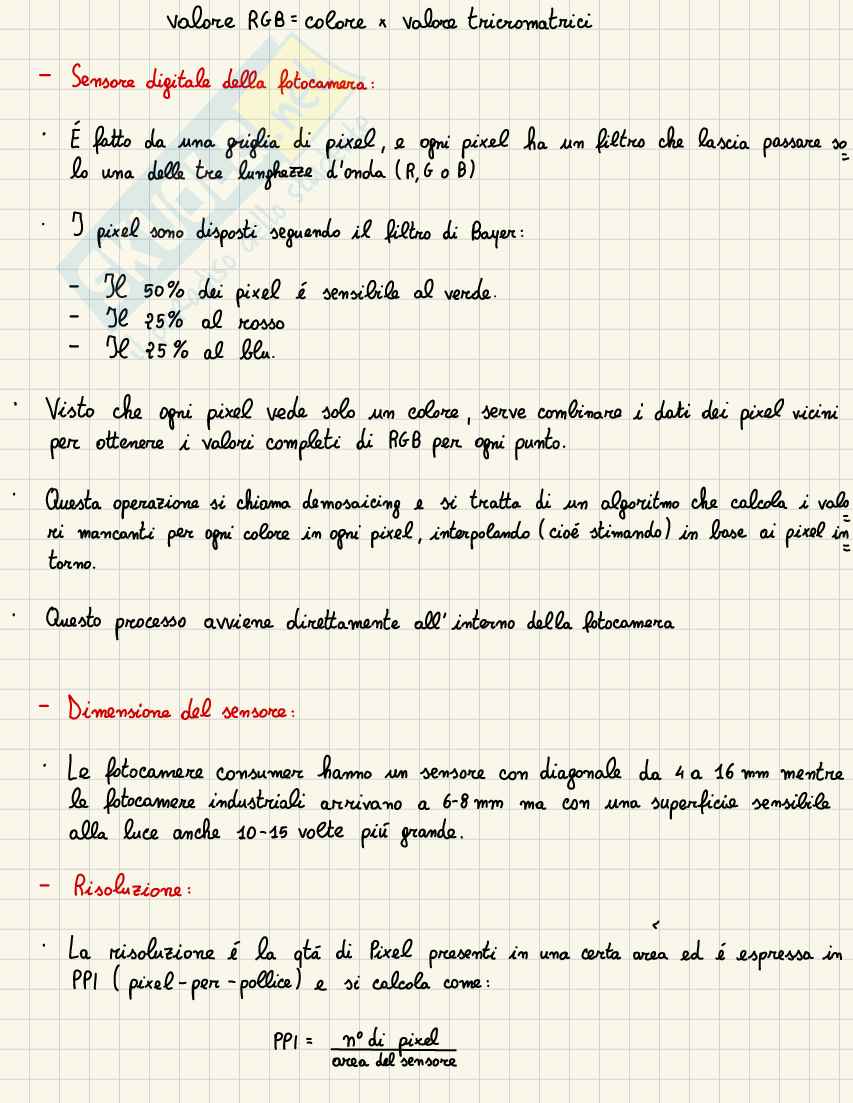 valore RGB = colore × valore tricromatrici
- Sensore digitale della fotocamera:
· É fatto da una griglia di pixel, e ogni pixel ha un filtro che lascia passare so
lo una delle tre lunghezze d'onda (R, G o B)
· I pixel sono disposti seguendo il filtro di Bayer:
- Il 50% dei pixel é sensibile al verde.
- Il 25% al rosso
- Il 25% al blu.
· Visto che ogni pixel vede solo un colore, serve combinare i dati dei pixel vicini
per ottenere i valori completi di RGB per ogni punto.
· Questa operazione si chiama demosaicing e si tratta di un algoritmo che calcola i valo
ri mancanti per ogni colore in ogni pixel, interpolando (cioé stimando) in base ai pixel in
torno.
· Questo processo avviene direttamente all'interno della fotocamera
- Dimensione del sensore:
· Le fotocamere consumer hanno un sensore con diagonale da 4 a 16 mm mentre
le fotocamere industriali arrivano a 6-8 mm ma con una superficie sensibile
alla luce anche 10-15 volte piú grande.
- Risoluzione:
· La risoluzione é la qtá di Pixel presenti in una certa area ed é espressa in
PPI (pixel-per-pollice) e si calcola come:
PPI = n° di pixel
area del sensore